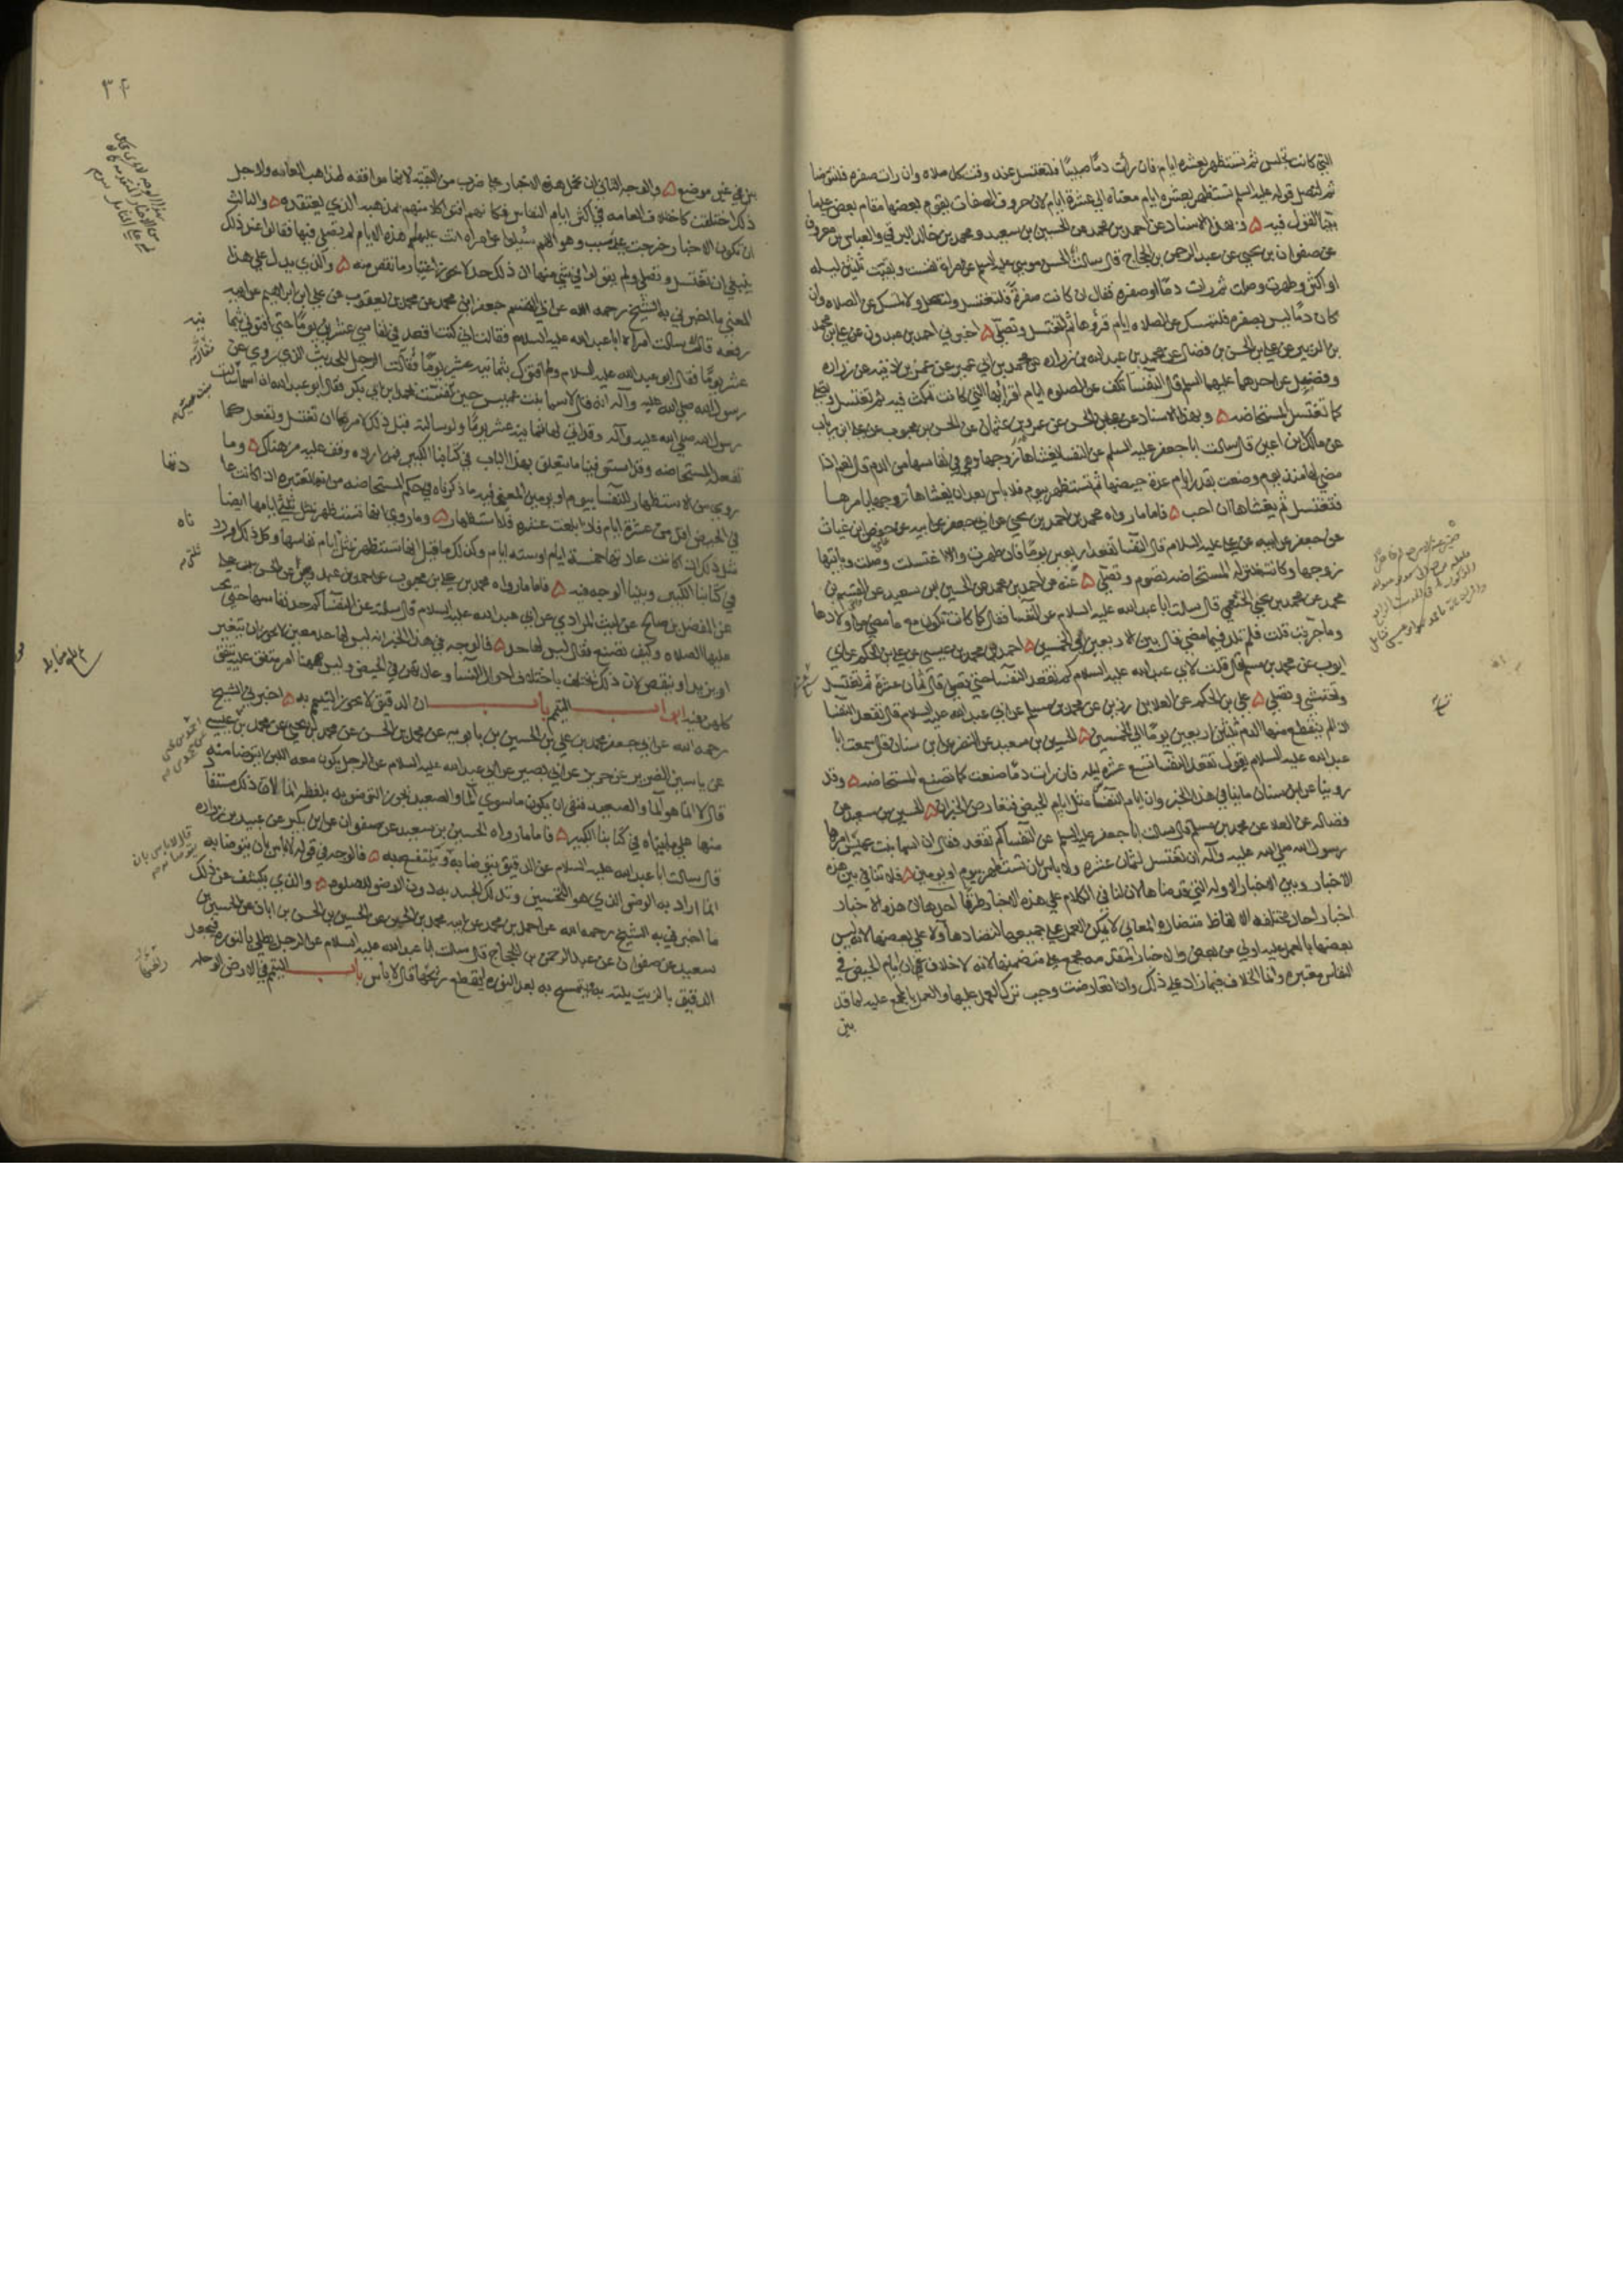 التي كانت تجلس ثم تستظهر بعشرة ايام فان رأت دما صبيبا فلتغتسل عند وقت كل صلاه وان رات صفره فلتتوضا
ثم لتصل قوله عليه السلم تستظهر بعشره ايام معناه الي عشرة ايام لان حروف الصفات يقوم بعضها مقام بعض
بينا القول فيه ۵ و بهذا الاسناد عن احمد بن محمد عن الحسين بن سعيد و محمد بن خالد البرقي والعباس بن معروف
عن صفوان بن يحيي عن عبد الرحمن بن الحجاج قال سالت ابا الحسن موسي عليه السلم عن امراه نفست وبقيت ثلثين ليله
او اكثر وطهرت وصلت ثم رات دما او صفره فقال ان كانت صفرة فلتغتسل ولتصل ولا تمسك عن الصلاه وان
كان دما ليس بصفره فلتمسك عن الصلاه ايام قرؤها ثم لتغتسل وتصلي ۵ اخبرني احمد بن عبدون عن علي بن محمد
بن الزبير عن علي بن الحسن بن فضال عن محمد بن عبد الله بن زراره عن محمد بن ابي عمير عن عمر بن اذينه عن زراره
وفضيل عن احدهما عليهما السلم قال النفسا تكف عن الصلوه ايام اقرائها التي كانت تمكث فيه ثم تغتسل وتصلي
كما تغتسل المستحاضه ۵ وبهذا الاسناد عن علي بن الحسن عن عمرو بن عثمان عن الحسن بن محبوب عن علي بن رياب
عن مالك بن اعين قال سالت ابا جعفر عليه السلم عن النفسا يغشاها زوجها وهي في نفاسها من الدم قال نعم اذا
مضي لها منذ يوم وضعت بقدر ايام عدة حيضها ثم تستظهر بيوم فلا باس بعد ان يغشاها زوجها يامرها
فتغتسل ثم يغشاها ان احب ۵ فاما ما رواه محمد بن احمد بن يحيي عن ابي جعفر عن ابيه عن حفص بن غياث
عن جعفر عن ابيه عن علي عليه السلام قال النفسا تقعد اربعين يوما فان طهرت والا اغتسلت وصلت وياتيها
زوجها وكانت بمنزله المستحاضه تصوم وتصلي ۵ عنه عن احمد بن محمد عن الحسين بن سعيد عن القسم بن
محمد عن محمد بن يحيي الخثعمي قال سالت ابا عبد الله عليه السلام عن النفسا فقال كما كانت تكون مع ما مضي من اولادها
وما جربت قلت فلم تلد فيما مضي قال بين الاربعين الي الخمسين ۵ احمد بن محمد بن عيسي عن علي بن الحكم عن ابي
ايوب عن محمد بن مسلم قال قلت لابي عبد الله عليه السلام كم تقعد النفسا حتي تصلي قال ثمان عشرة ثم تغتسل
وتحتشي وتصلي ۵ علي بن الحكم عن العلا بن رزين عن محمد بن مسلم عن ابي عبد الله عليه السلام قال تقعد النفسا
اذا لم ينقطع عنها الدم ثلثين اربعين يوما الي الخمسين ۵ الحسين بن سعيد عن النضر عن ابن سنان قال سمعت ابا
عبد الله عليه السلام يقول تقعد النفسا تسع عشره ليله فان رات دما صنعت كما تصنع المستحاضه ۵ وقد
روينا عن ابن سنان ما ينافي هذا الخبر وان ايام النفسا مثل ايام الحيض فتعارض الخبران ۵ الحسين بن سعيد عن
فضاله عن العلا عن محمد بن مسلم قال سالت ابا جعفر عليه السلم عن النفسا كم تقعد فقال ان اسما بنت عميس امرها
رسول الله صلي الله عليه وآله ان تغتسل لثمان عشره ولا باس بان تستظهر بيوم او يومين ۵ فلا تنافي بين هذه
الاخبار وبين الاخبار الاوله التي قدمناها لان لنا في الكلام علي هذه الاخبار طرقا احدها ان هذه الاخبار
اخبار احاد مختلفه الالفاظ متضاده المعاني لا يمكن العمل علي جميعها لتضادها ولا علي بعضها لانه ليس
بعضها بالعمل عليه اولي من بعض والاخبار المتقدمه مجمع علي متضمنها لانه لا خلاف في ان ايام الحيض في
النفاس معتبره وانما الخلاف فيما زاد علي ذلك واذا تعارضت وجب ترك العمل عليها والعمل بالمجمع عليه لما قد
بين
۳۴
بين في غير موضع ۵ والوجه الثاني ان نحمل هذه الاخبار علي ضرب من التقيه لانها موافقه لمذاهب العامه ولاجل
ذلك اختلفت كاختلاف العامه في اكثر ايام النفاس فكانهم افتوا كلا منهم بمذهبه الذي يعتقده ۵ والثالث
ان تكون الاخبار خرجت علي سبب وهو انهم سئلوا عن امراه اتت عليهم هذه الايام لم تصلي فيها فقالوا عند ذلك
ينبغي ان تغتسل وتصلي ولم يقولوا في شي منها ان ذلك حد لا يجوز اعتبار ما نقص منه ۵ والذي يدل علي هذا
المعني ما اخبرني به الشيخ رحمه الله عن ابي القسم جعفر بن محمد عن محمد بن يعقوب عن علي بن ابراهيم عن ابيه
رفعه قال سالت امراه ابا عبد الله عليه السلام فقالت اني كنت اقعد في نفاسي عشرين يوما حتي افتوني بثمانيه
عشر يوما فقال ابو عبد الله عليه السلام ولم افتوك بثمانيه عشر يوما فقالت الرجل للحديث الذي روي عن
رسول الله صلي الله عليه وآله انه قال لاسما بنت عميس حين نفست بمحمد بن ابي بكر فقال ابو عبد الله ان اسما سالت
رسول الله صلي الله عليه وآله وقد اتي لها ثمانيه عشر يوما ولو سالته قبل ذلك لامرها ان تغتسل وتفعل كما
تفعل المستحاضه وقد استوفينا ما يتعلق بهذا الباب في كتابنا الكبير فمن اراده وقف عليه من هناك ۵ وما
روي من الاستظهار للنفسا بيوم او يومين المعني فيه ما ذكرناه في حكم المستحاضه من انها تعتبره اذا كانت عادتها
في الحيض اقل من عشرة ايام فاذا بلغت عشره فلا استظهار ۵ وما روي انها تستظهر بمثل ثلثي ايامها ايضا
مثل ذلك اذا كانت عادتها خمسة ايام او سته ايام وكذلك ما قيل انها تستظهر بمثل ايام نفاسها وكل ذلك اورد
في كتابنا الكبير وبينا الوجه فيه ۵ فاما ما رواه محمد بن علي بن محبوب
عن المفضل بن صالح عن ليث المرادي عن ابي عبد الله عليه السلام قال سالته عن النفسا كم حد نفاسها حتي يجب
عليها الصلاه وكيف تصنع فقال ليس لها حد ۵ فالوجه في هذا الخبر انه ليس لها حد معين لا يجوز ان يتغير
او يزيد او ينقص لان ذلك يختلف باختلاف احوال النسا وعادتهن في الحيض وليس ههنا امر يتفق عليه يتفق
كلهن فيه ابواب التيمم باب ان الدقيق لا يجوز التيمم به ۵ اخبرني الشيخ
رحمه الله عن ابي جعفر محمد بن علي بن الحسين بن بابويه عن محمد بن الحسن عن محمد بن يحيي عن محمد بن
عن ياسين الضرير عن حريز عن ابي بصير عن ابي عبد الله عليه السلام عن الرجل يكون معه اللبن ايتوضا منه
قال لا انما هو الما والصعيد فنفي ان يكون ما سوي الما والصعيد يجوز التوضو به بلفظه انما لان ذلك مستفاد
منها علي ما بيناه في كتابنا الكبير ۵ فاما ما رواه الحسين بن سعيد عن صفوان عن ابن بكير عن عبيد بن زراره
قال سالت ابا عبد الله عليه السلام عن الدقيق يتوضا به وينتفع به ۵ فالوجه في قوله لا باس بان يتوضا به
انما اراد به الوضو الذي هو التحسين وتدلك الجسد به دون الوضو للصلوه ۵ والذي يكشف عن ذلك
ما اخبرني به الشيخ رحمه الله عن احمد بن محمد عن ابيه عن الحسين بن الحسن بن ابان عن الحسين بن
سعيد عن صفوان عن عبد الرحمن بن الحجاج قال سالت ابا عبد الله عليه السلام عن الرجل يطلي بالنوره فيجعل
الدقيق بالزيت يلته به يتمسح به بعد النوره ليقطع ريحها قال لا باس باب التيمم في الارض الوحله